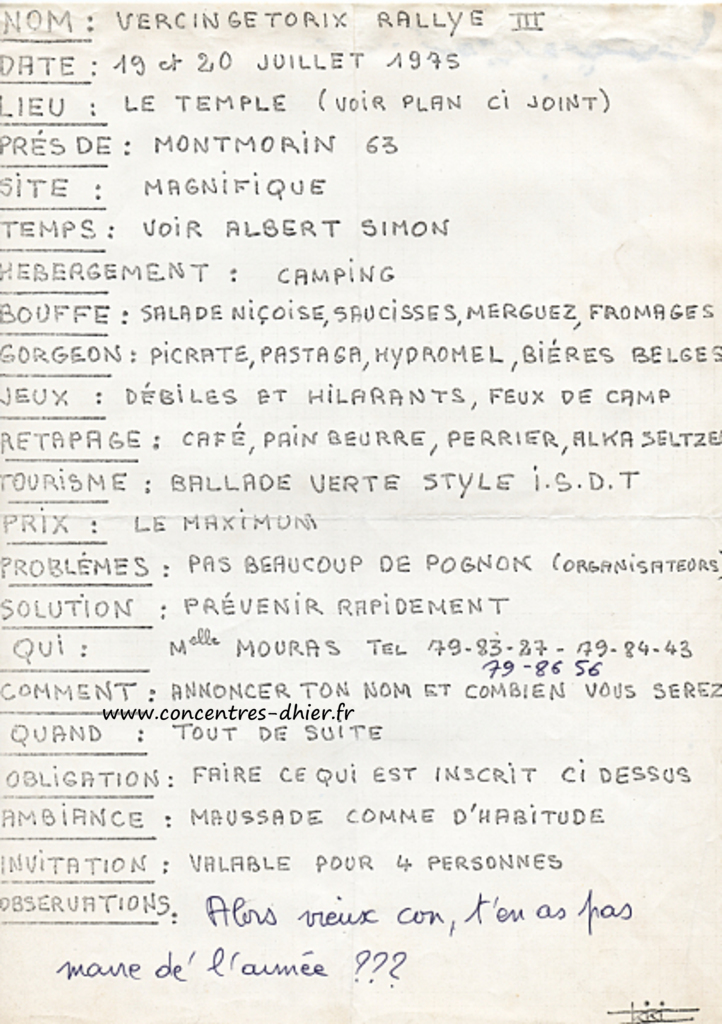 NOM : VERCINGETORIX RALLYE III
DATE : 19 et 20 JUILLET 1975
LIEU : LE TEMPLE (VOIR PLAN CI JOINT)
PRÉS DE : MONTMORIN 63
SITE : MAGNIFIQUE
TEMPS : VOIR ALBERT SIMON
HEBERGEMENT : CAMPING
BOUFFE : SALADE NIÇOISE, SAUCISSES, MERGUEZ, FROMAGES
GORGEON : PICRATE, PASTAGA, HYDROMEL, BIÉRES BELGES
JEUX : DÉBILES ET HILARANTS, FEUX DE CAMP
RETAPAGE : CAFÉ, PAIN BEURRE, PERRIER, ALKA SELTZE
TOURISME : BALLADE VERTE STYLE I.S.D.T
PRIX : LE MAXIMUM
PROBLÉMES : PAS BEAUCOUP DE POGNON (ORGANISATEURS)
SOLUTION : PRÉVENIR RAPIDEMENT
QUI : Melle MOURAS TEL 79-83-27 - 79-84-43
79-86 56
COMMENT : ANNONCER TON NOM ET COMBIEN VOUS SEREZ
www.concentres-dhier.fr
QUAND : TOUT DE SUITE
OBLIGATION : FAIRE CE QUI EST INSCRIT CI DESSUS
AMBIANCE : MAUSSADE COMME D'HABITUDE
INVITATION : VALABLE POUR 4 PERSONNES
OBSERVATIONS : Alors vieux con, t'en as pas
marre de l'armée ???